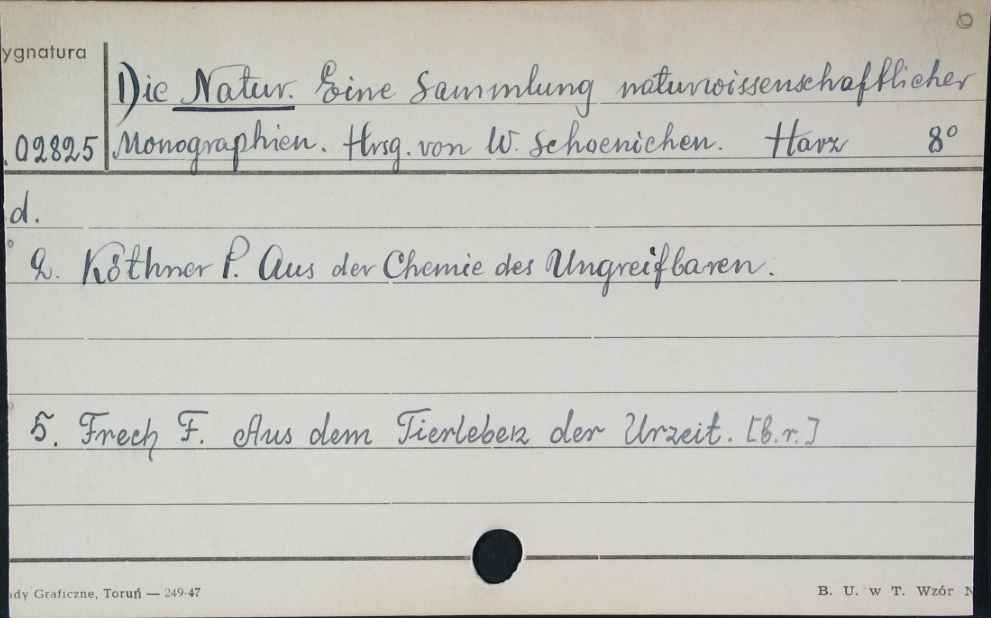 ygnatura
Die Natur. Eine Sammlung naturwissenschaftlicher
.02825 Monographien. Hrsg. von W. Schoenichen. Harz 8°
d.
2. Köthner P. Aus der Chemie des Ungreifbaren.
5. Frech F. Aus dem Tierleben der Urzeit. [b.r.]
ady Graficzne, Toruń — 249-47
B. U. w T. Wzór N